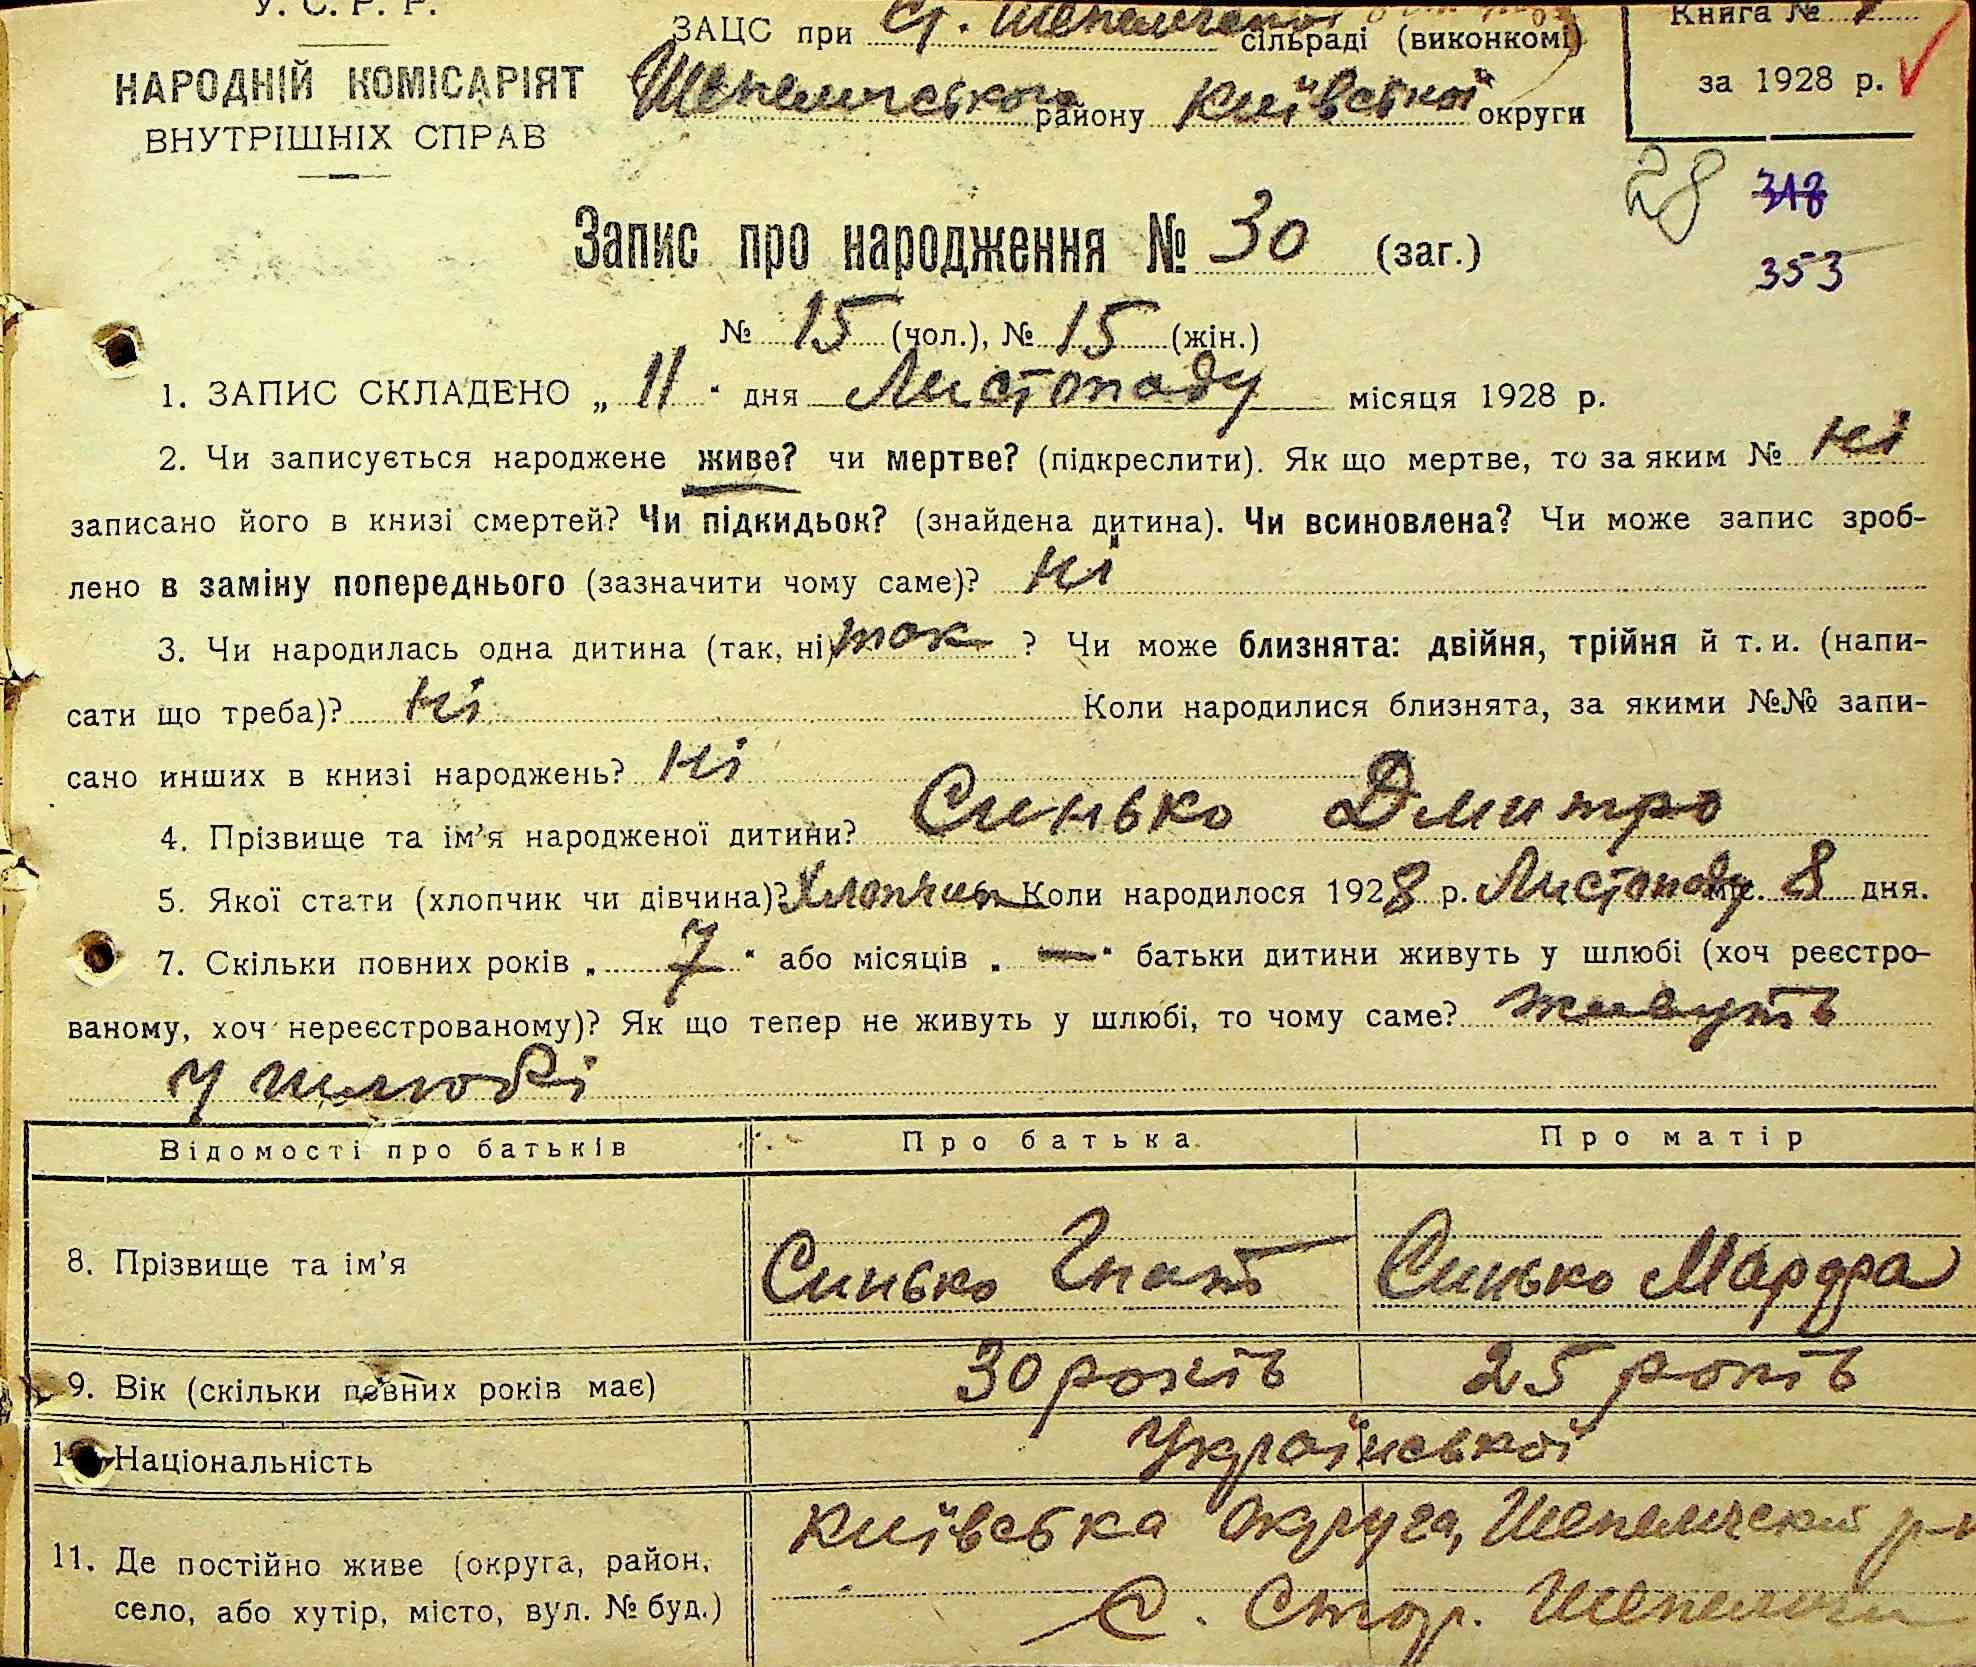 У. С. Р. Р.
НАРОДНІЙ КОМІСАРІЯТ
ВНУТРІШНІХ СПРАВ
ЗАЦС при Ст. Шепеличенській сільраді (виконкомі)
Шепелического району Київської округи
Книга №
за 1928 р.
28 318
353
Запис про народження № 30 (заг.)
№ 15 (чол.), № 15 (жін.)
1. ЗАПИС СКЛАДЕНО „ 11 " дня Листопаду місяця 1928 р.
2. Чи записується народжене живе? чи мертве? (підкреслити). Як що мертве, то за яким № ні
записано його в книзі смертей? Чи підкидьок? (знайдена дитина). Чи всиновлена? Чи може запис зроб-
лено в заміну попереднього (зазначити чому саме)? ні
3. Чи народилась одна дитина (так, ні) так ? Чи може близнята: двійня, трійня й т. и. (напи-
сати що треба)? ні Коли народилися близнята, за якими №№ запи-
сано инших в книзі народжень? ні
4. Прізвище та ім'я народженої дитини? Синько Дмитро
5. Якої стати (хлопчик чи дівчина)? Хлопчик Коли народилося 1928 р. Листопаду м-с. 8 дня.
7. Скільки повних років „ 7 " або місяців „ — " батьки дитини живуть у шлюбі (хоч реєстро-
ваному, хоч нереєстрованому)? Як що тепер не живуть у шлюбі, то чому саме? живуть
у шлюбі
Відомості про батьків Про батька Про матір
8. Прізвище та ім'я Синько Гнат Синько Мардра
9. Вік (скільки повних років має) 30 років 25 років
10. Національність Української
11. Де постійно живе (округа, район, село, або хутір, місто, вул. № буд.) Київська округа, Шепелический р-н
С. Стар. Шепеличи